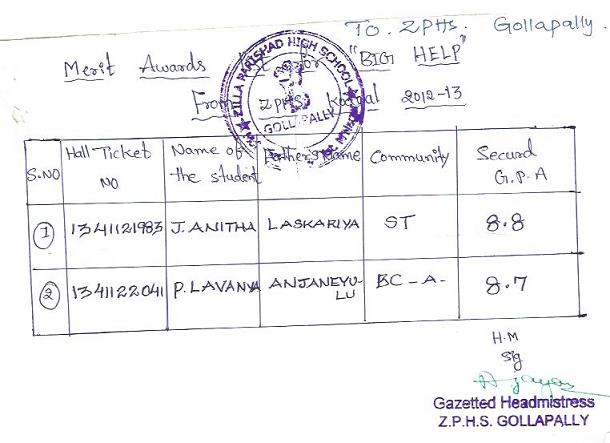 To. ZPHs. Gollapally.
Merit Awards for "BIG HELP"
From ZPHS 2012-13
ZILLA PARISHAD HIGH SCHOOL
GOLLAPALLY
S.NO Hall Ticket NO Name of the student Father's Name Community Securd G.P.A
1 1341121983 J. ANITHA LASKARIYA ST 8.8
2 1341122041 P. LAVANYA ANJANEYU-LU BC-A- 8.7
H.M
Sig
Gazetted Headmistress
Z.P.H.S. GOLLAPALLY